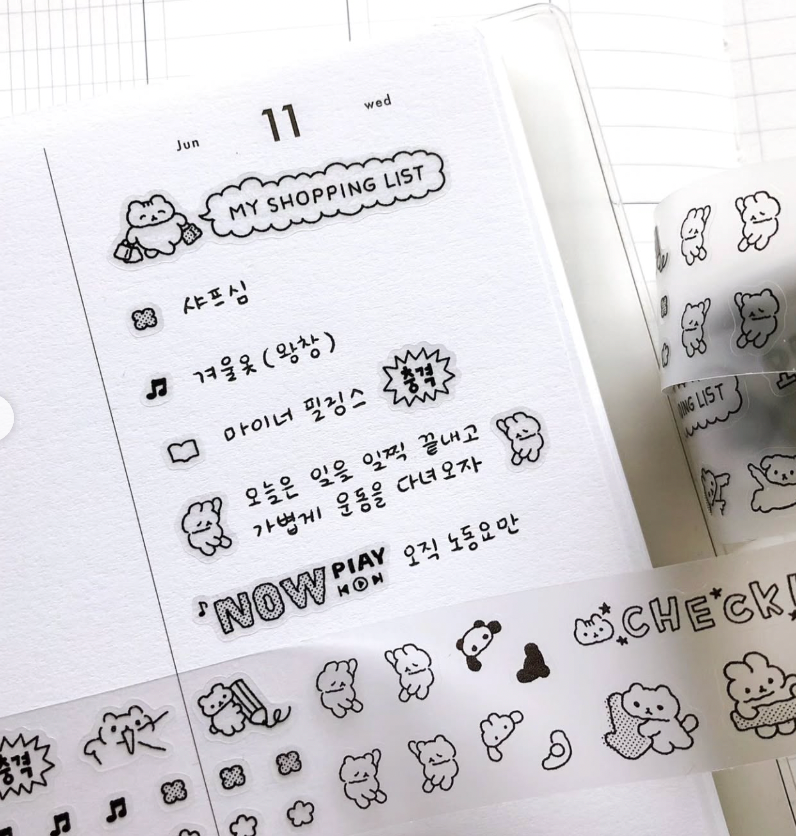 Jun 11 wed
MY SHOPPING LIST
샤프심
겨울옷(왕창)
마이너 필링스 충격
오늘은 일을 일찍 끝내고
가볍게 운동을 다녀오자
NOW PlAY 오직 노동요만
ING LIST
CHECK!
충격